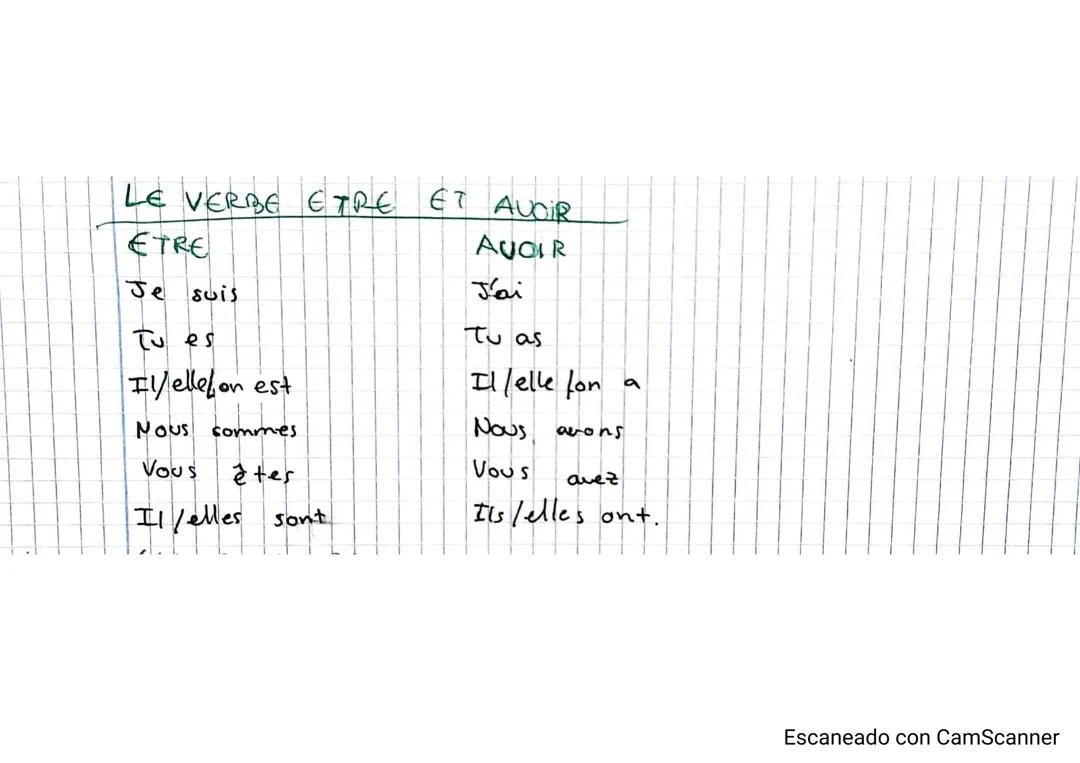 LE VERBE ETRE ET AVOIR
ETRE AVOIR
Je suis J'ai
Tu es Tu as
Il/elle/on est Il/elle/on a
Nous sommes Nous avons
Vous êtes Vous avez
Il/elles sont Ils/elles ont.
Escaneado con CamScanner